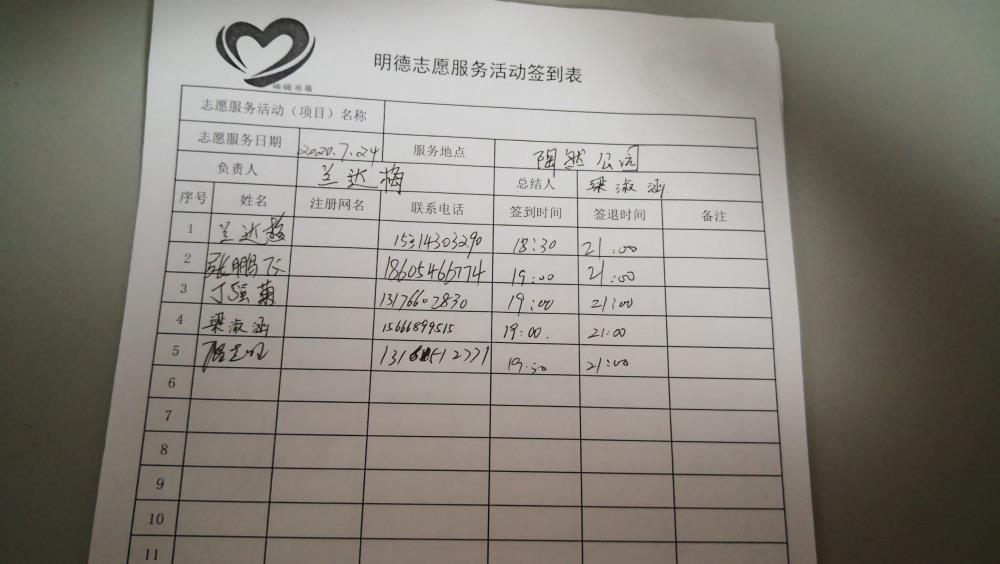 明德志愿服务活动签到表
志愿服务活动（项目）名称
志愿服务日期 2020.7.24 服务地点 陶然公园
负责人 兰达梅 总结人 梁淑涵
序号 姓名 注册网名 联系电话 签到时间 签退时间 备注
1 兰达梅 15314303290 18:30 21:00
2 张鹏飞 18605466774 19:00 21:00
3 丁强菊 13176602830 19:00 21:00
4 梁淑涵 15666899515 19:00. 21:00
5 19:30 21:00
6
7
8
9
10
11